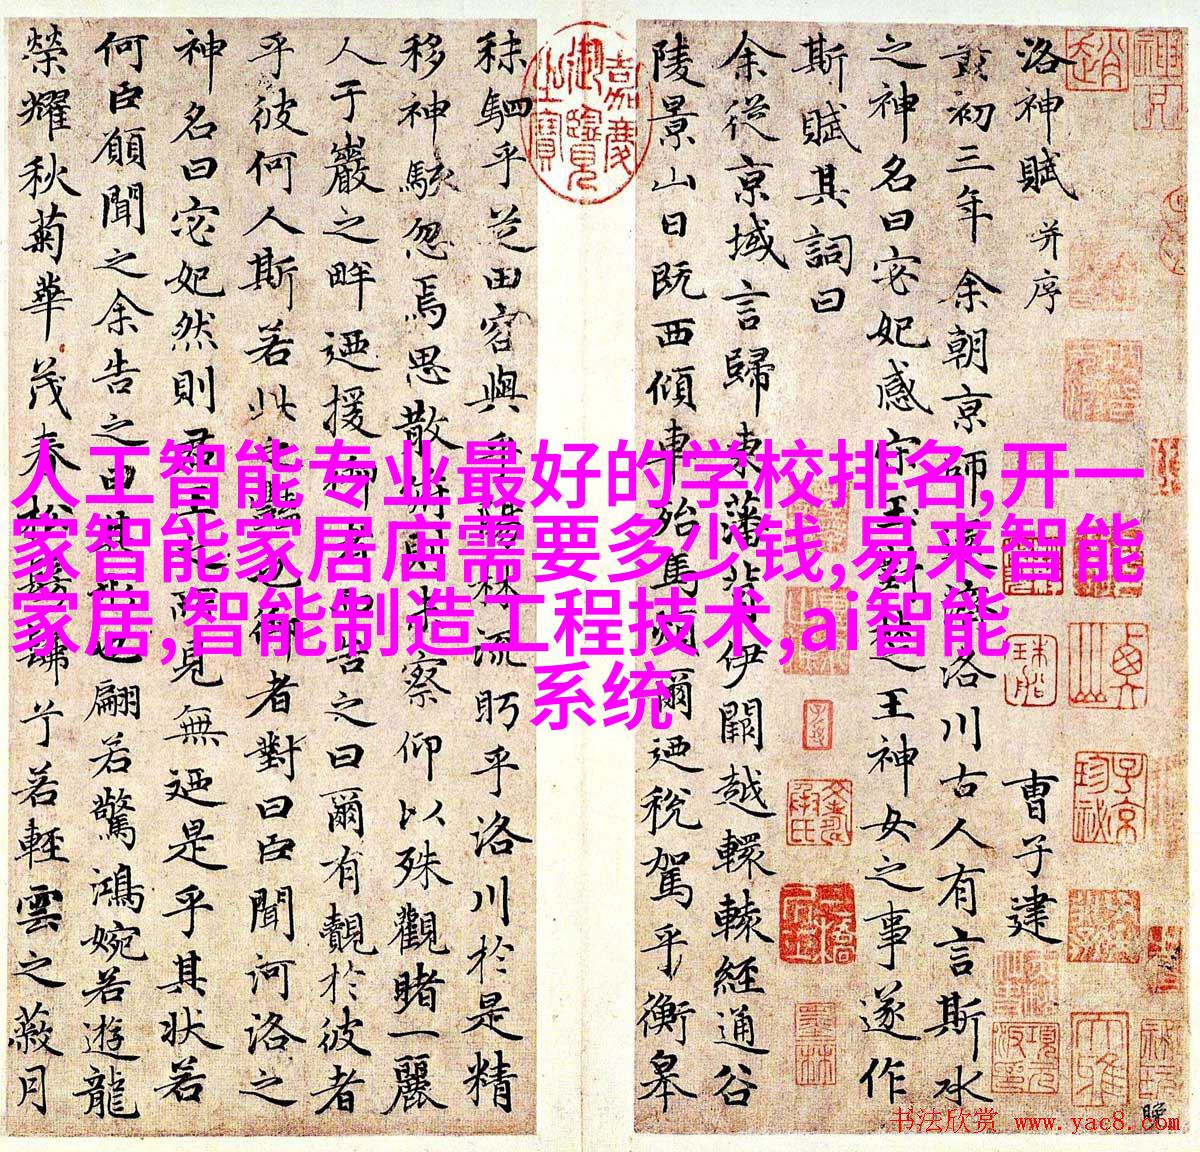 洛神賦 并序 曹子建
黃初三年余朝京師還濟洛川古人有言斯水
之神名曰宓妃感宋玉對楚王神女之事遂作
斯賦其詞曰
余從京域言歸東藩背伊闕越轘轅經通谷
陵景山日既西傾車殆馬煩爾迺稅駕乎衡皋
秣駟乎芝田容與乎陽林流眄乎洛川於是精
移神駭忽焉思散俯則未察仰以殊觀睹一麗
人于巖之畔迺援御者而告之曰爾有覿於彼者
乎彼何人斯若此之豔也御者對曰臣聞河洛之
神名曰宓妃然則君王之所見無迺是乎其狀若
何臣願聞之余告之曰其形也翩若驚鴻婉若遊龍
榮耀秋菊華茂春松髣髴兮若輕雲之蔽月
嘉慶御覽之寶
人工智能专业最好的学校排名,开一
家智能家居店需要多少钱,易来智能
家居,智能制造工程技术,ai智能
系统
书法欣赏 www.yac8.com